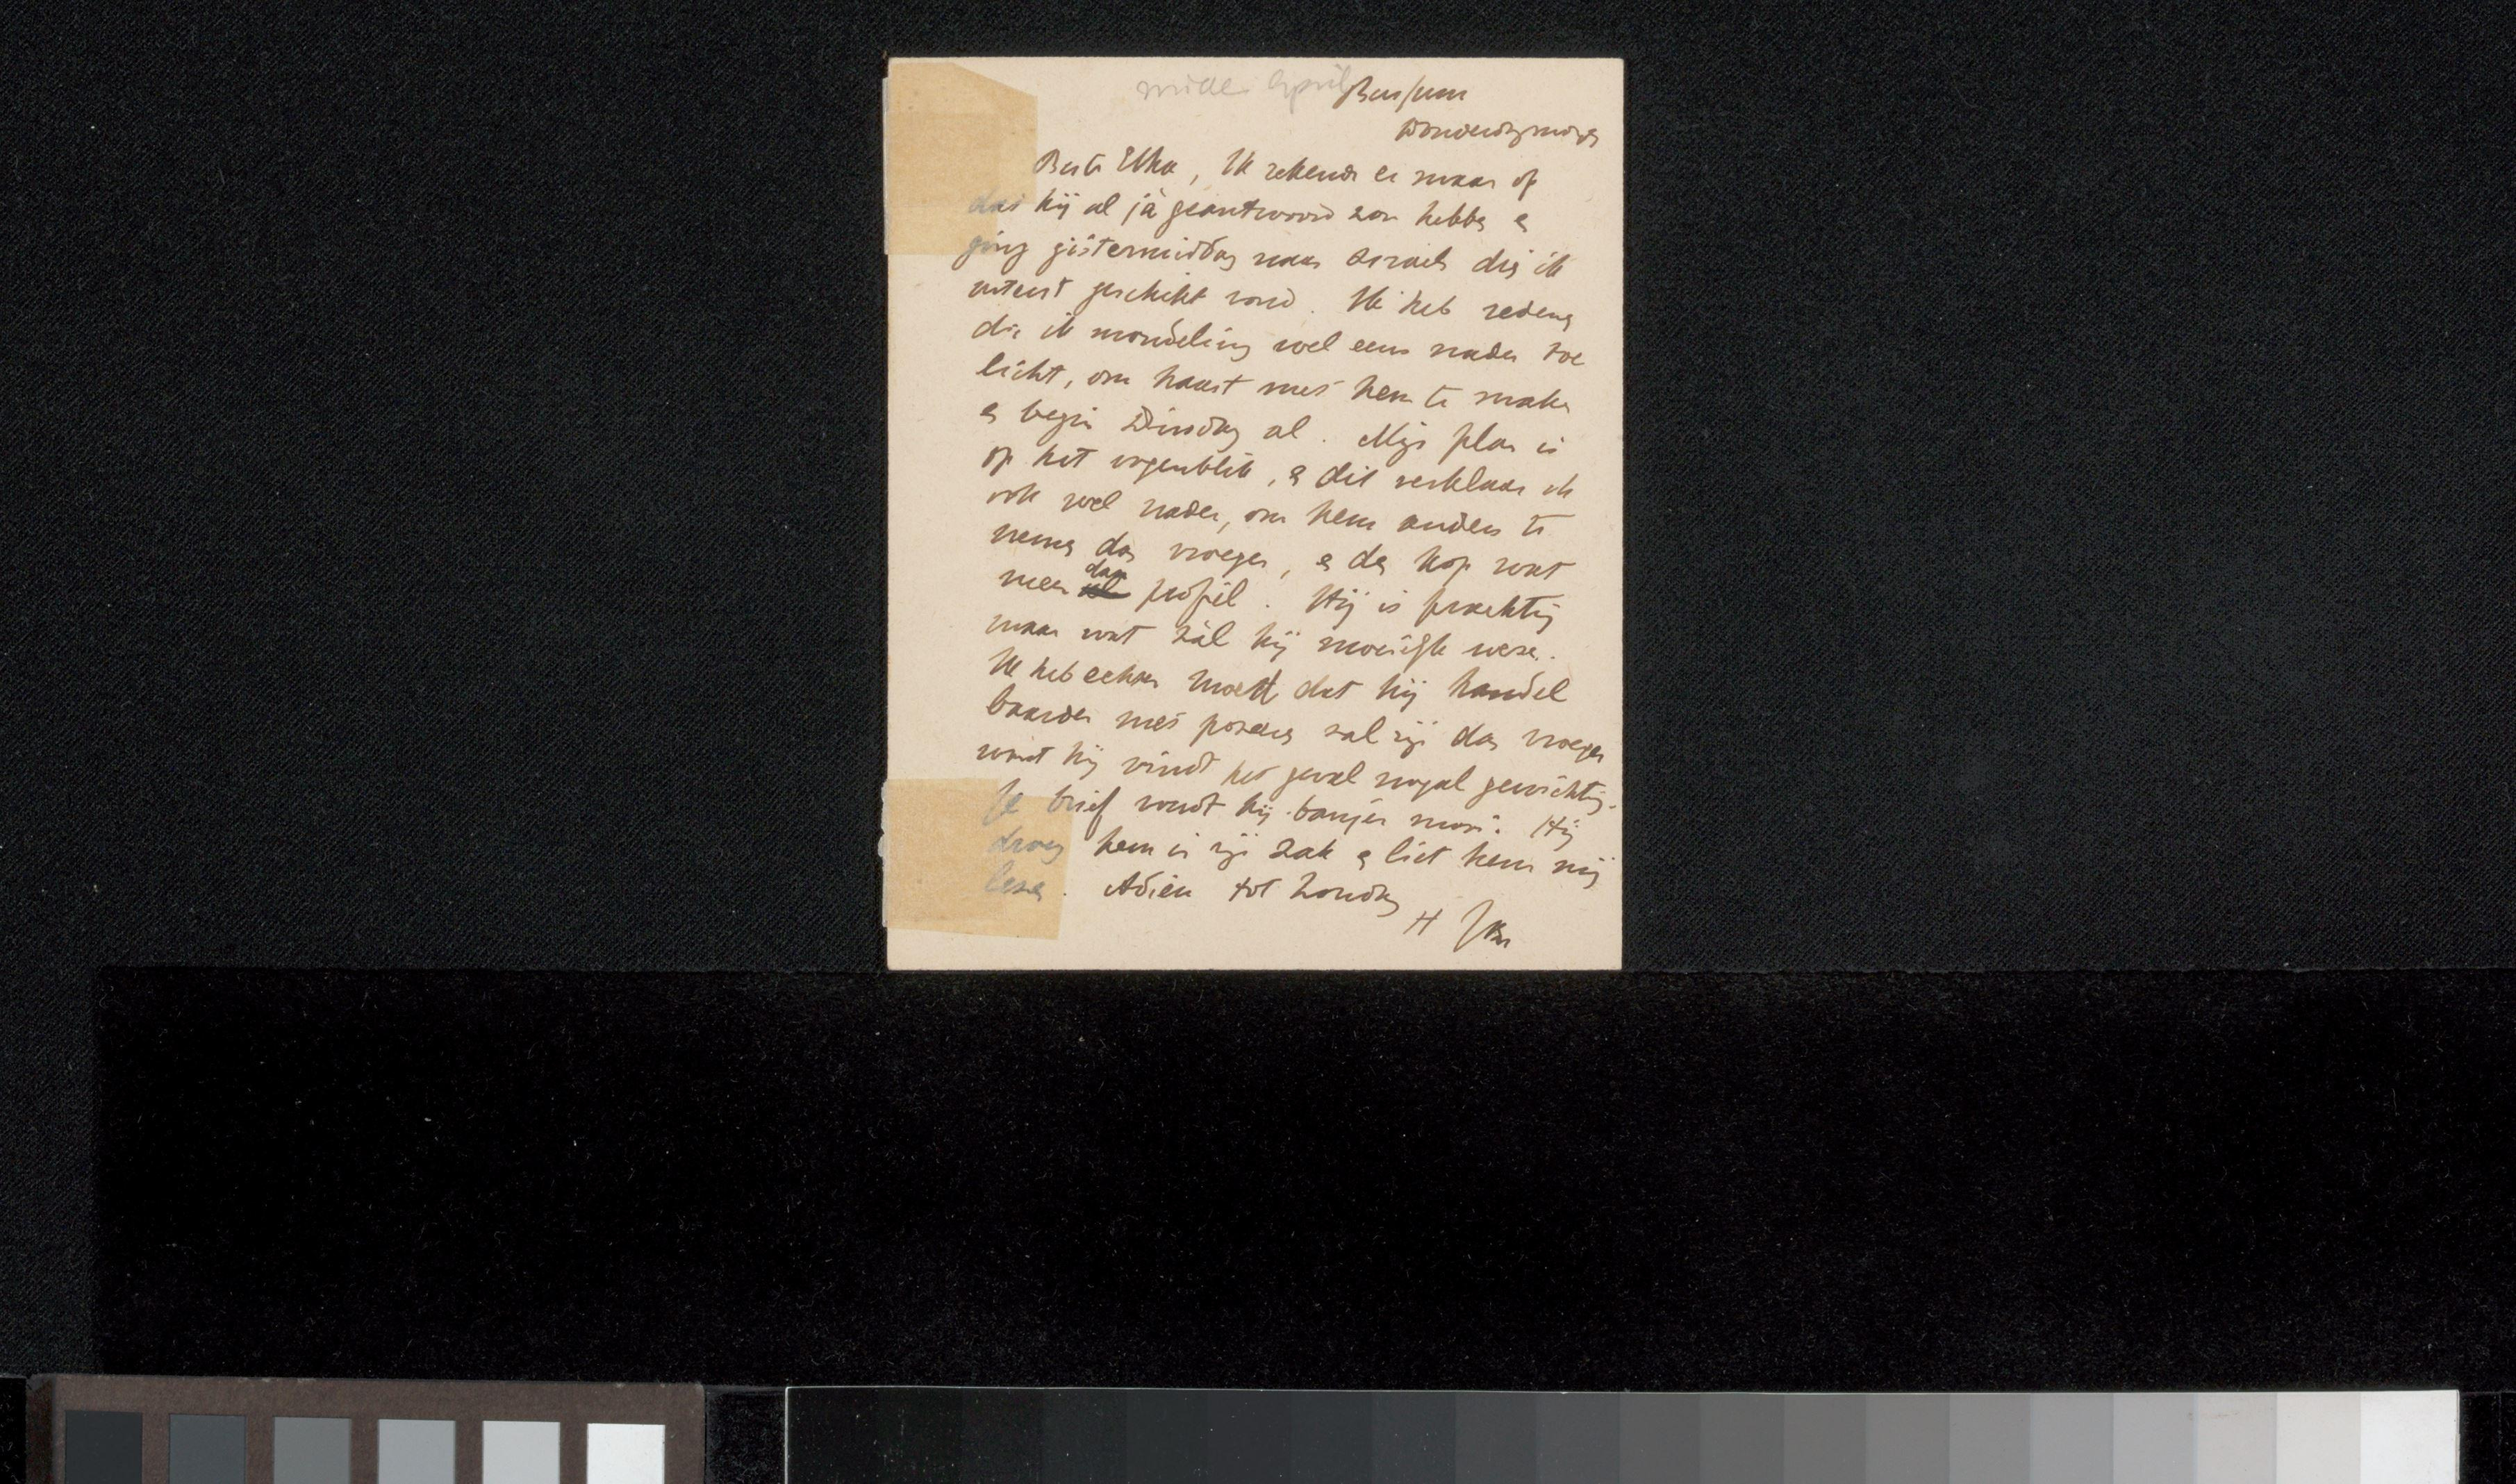 midden April Bussum
Donderdagmorgen
Beste Etha, Ik rekende er maar op
dat hij al jà geantwoord zou hebben en
ging gistermiddag naar Israels dien ik
uiterst geschikt vond. Ik heb redenen
die ik mondeling wel eens nader toe
licht, om haast met hem te maken
en begin Dinsdag al. Mijn plan is
op het oogenblik, en dit verklaar ik
ook wel nader, om hem anders te
nemen dan vroeger, en den kop wat
meer dan profil. Hij is prachtig
maar wat zàl hij moeielijk wezen.
Ik heb echter moed dat hij handel
baarder met poseeren zal zijn dan vroeger
want hij vindt het geval nogal gewichtig.
Je brief vondt hij banjer mooi. Hij
droeg hem in zijn zak en liet hem mij
lezen. Adieu tot Zondag